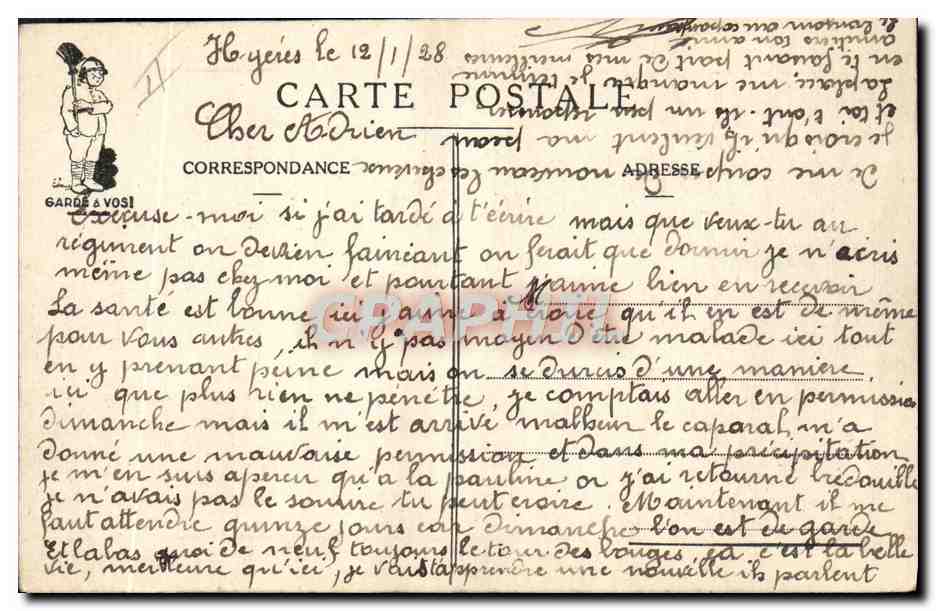 Hyéres le 12/1/28
CARTE POSTALE
Cher Adrien
CORRESPONDANCE
ADRESSE
GARDE à VOS!
Excuse-moi si j'ai tardé à t'écrire mais que veux-tu au
régiment on devien fainéant on ferait que dormir je n'écris
même pas chez moi et pourtant j'aime bien en recevoir
La santé est bonne ici j'aime à croire qu'il en est de même
pour vous autres, ih n'y pas moyen d'être malade ici tout
en y prenant peine mais on se durcis d'une manière
ici que plus rien ne penètre, je comptais aller en permission
dimanche mais il m'est arrivé malheur le caporal m'a
donné une mauvaise permission et dans ma précipitation
je m'en suis apercu qu'à la pauline or j'ai retourné bredouille
je n'avais pas le sourire tu peut croire. Maintenant il me
faut attendre quinze jours car dimanche l'on est de garde
Et labas quoi de neuf toujours le tour des bouges, ça c'est la belle
vie, meilleure qu'ici, je vous apprendre une nouvelle ih parlent
de me couper nouveau les cheveux
je crois qu'ih veulent ma peau
et toi t'ont-ils un peu
La place me manque je termine
en te faisant part de mes meilleures
amitiés ton ami
CPAPHIL